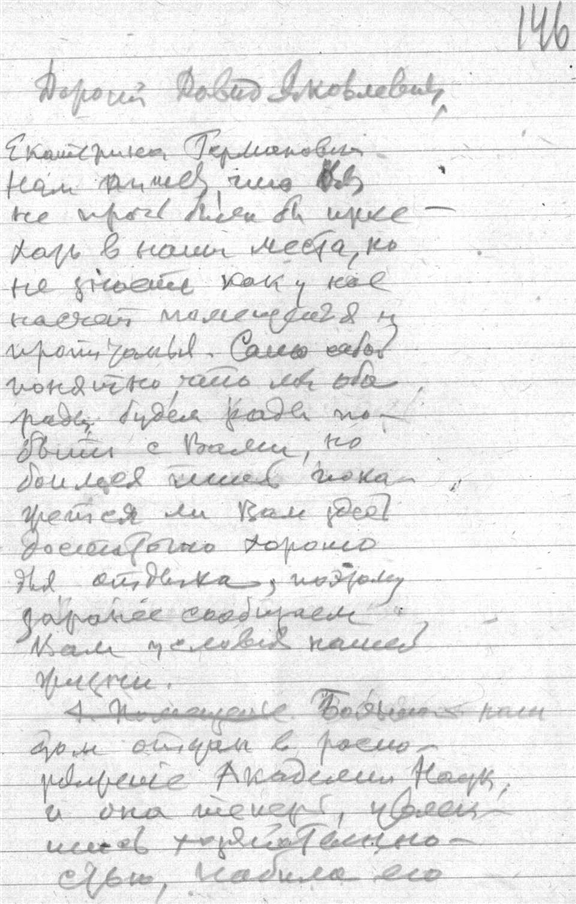 146
Дорогой Давид Яковлевич,
Екатерина Германовна
нам пишет, что Вы
не прочь были бы прие-
хать в наши места, но
не знаете как у нас
насчет помещенья и
пропитанья. Само собой
понятно, что мы оба
рады будем рады по-
быть с Вами, но
боимся пока-
жется ли Вам здесь
достаточно хорошо
для отдыха, поэтому
заранее сообщаем
Вам условия нашей
жизни.
1. Помещение. наш
дом отдан в распо-
ряжение Академии Наук,
и она теперь,
хозяйственно-
стью, набила его